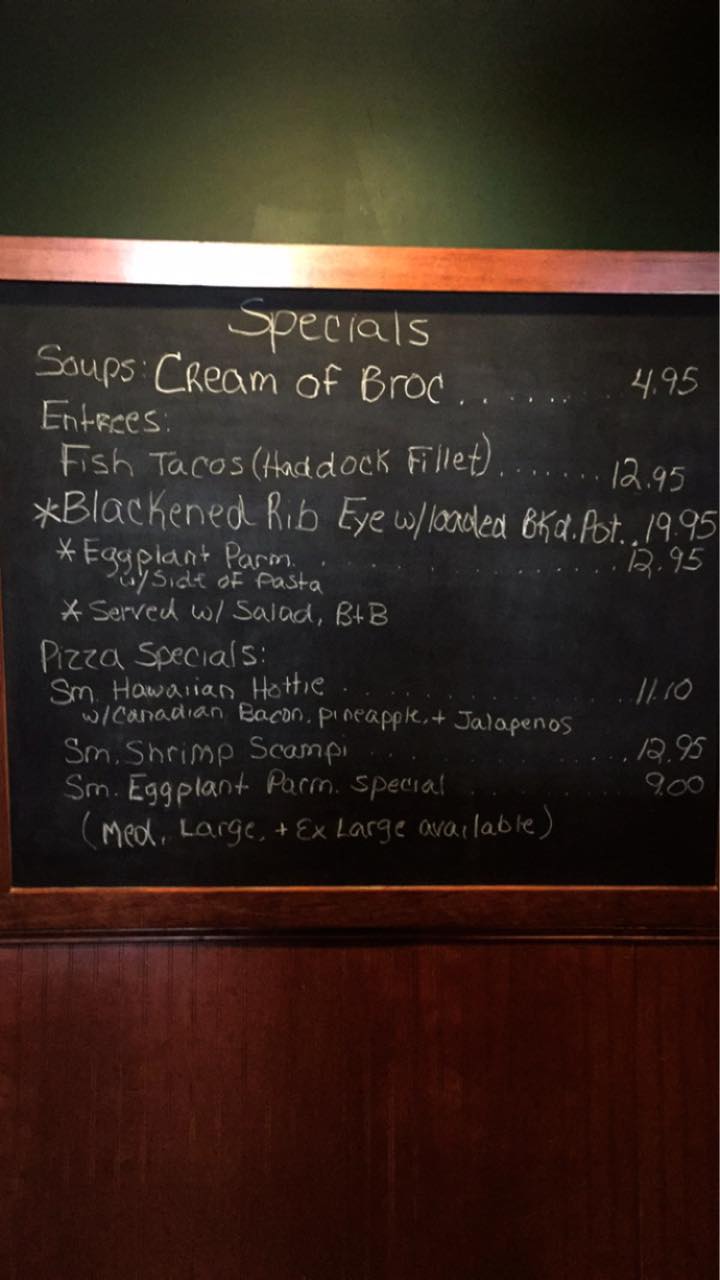 Specials
Soups: Cream of Broc ........ 4.95
Entrees:
Fish Tacos (Haddock Fillet) ....... 12.95
*Blackened Rib Eye w/loaded Bkd. Pot... 19.95
* Eggplant Parm. .................... 12.95
w/Side of Pasta
* Served w/ Salad, B+B
Pizza Specials:
Sm. Hawaiian Hottie .................... 11.10
w/Canadian Bacon, pineapple, + Jalapenos
Sm. Shrimp Scampi .................... 12.95
Sm. Eggplant Parm. Special ............ 9.00
(Med, Large, + Ex Large available)